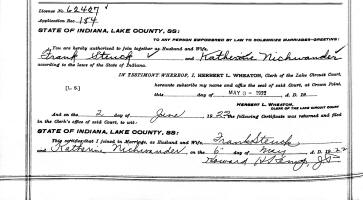 License No. 62427
Application Rec. 184
STATE OF INDIANA, LAKE COUNTY, SS:
TO ANY PERSON EMPOWERED BY LAW TO SOLEMNIZE MARRIAGES—GREETING:
You are hereby authorized to join together as Husband and Wife,
Frank Steuck and Katherine Nichwander
according to the laws of the State of Indiana.
IN TESTIMONY WHEREOF, I, HERBERT L. WHEATON, Clerk of the Lake Circuit Court,
hereunto subscribe my name and affix the seal of said Court, at Crown Point,
[L. S.]
this day of MAY 3 - 1922 A. D. 19
HERBERT L. WHEATON,
CLERK OF THE LAKE CIRCUIT COURT
And on the 2 day of June 1922 the following Certificate was returned and filed
in the Clerk's office of said Court, to-wit:
STATE OF INDIANA, LAKE COUNTY, SS:
This certifies that I joined in Marriage, as Husband and Wife Frank Steuck
and Katherine Nichwander on the 6 day of May A. D. 1922
Howard H.